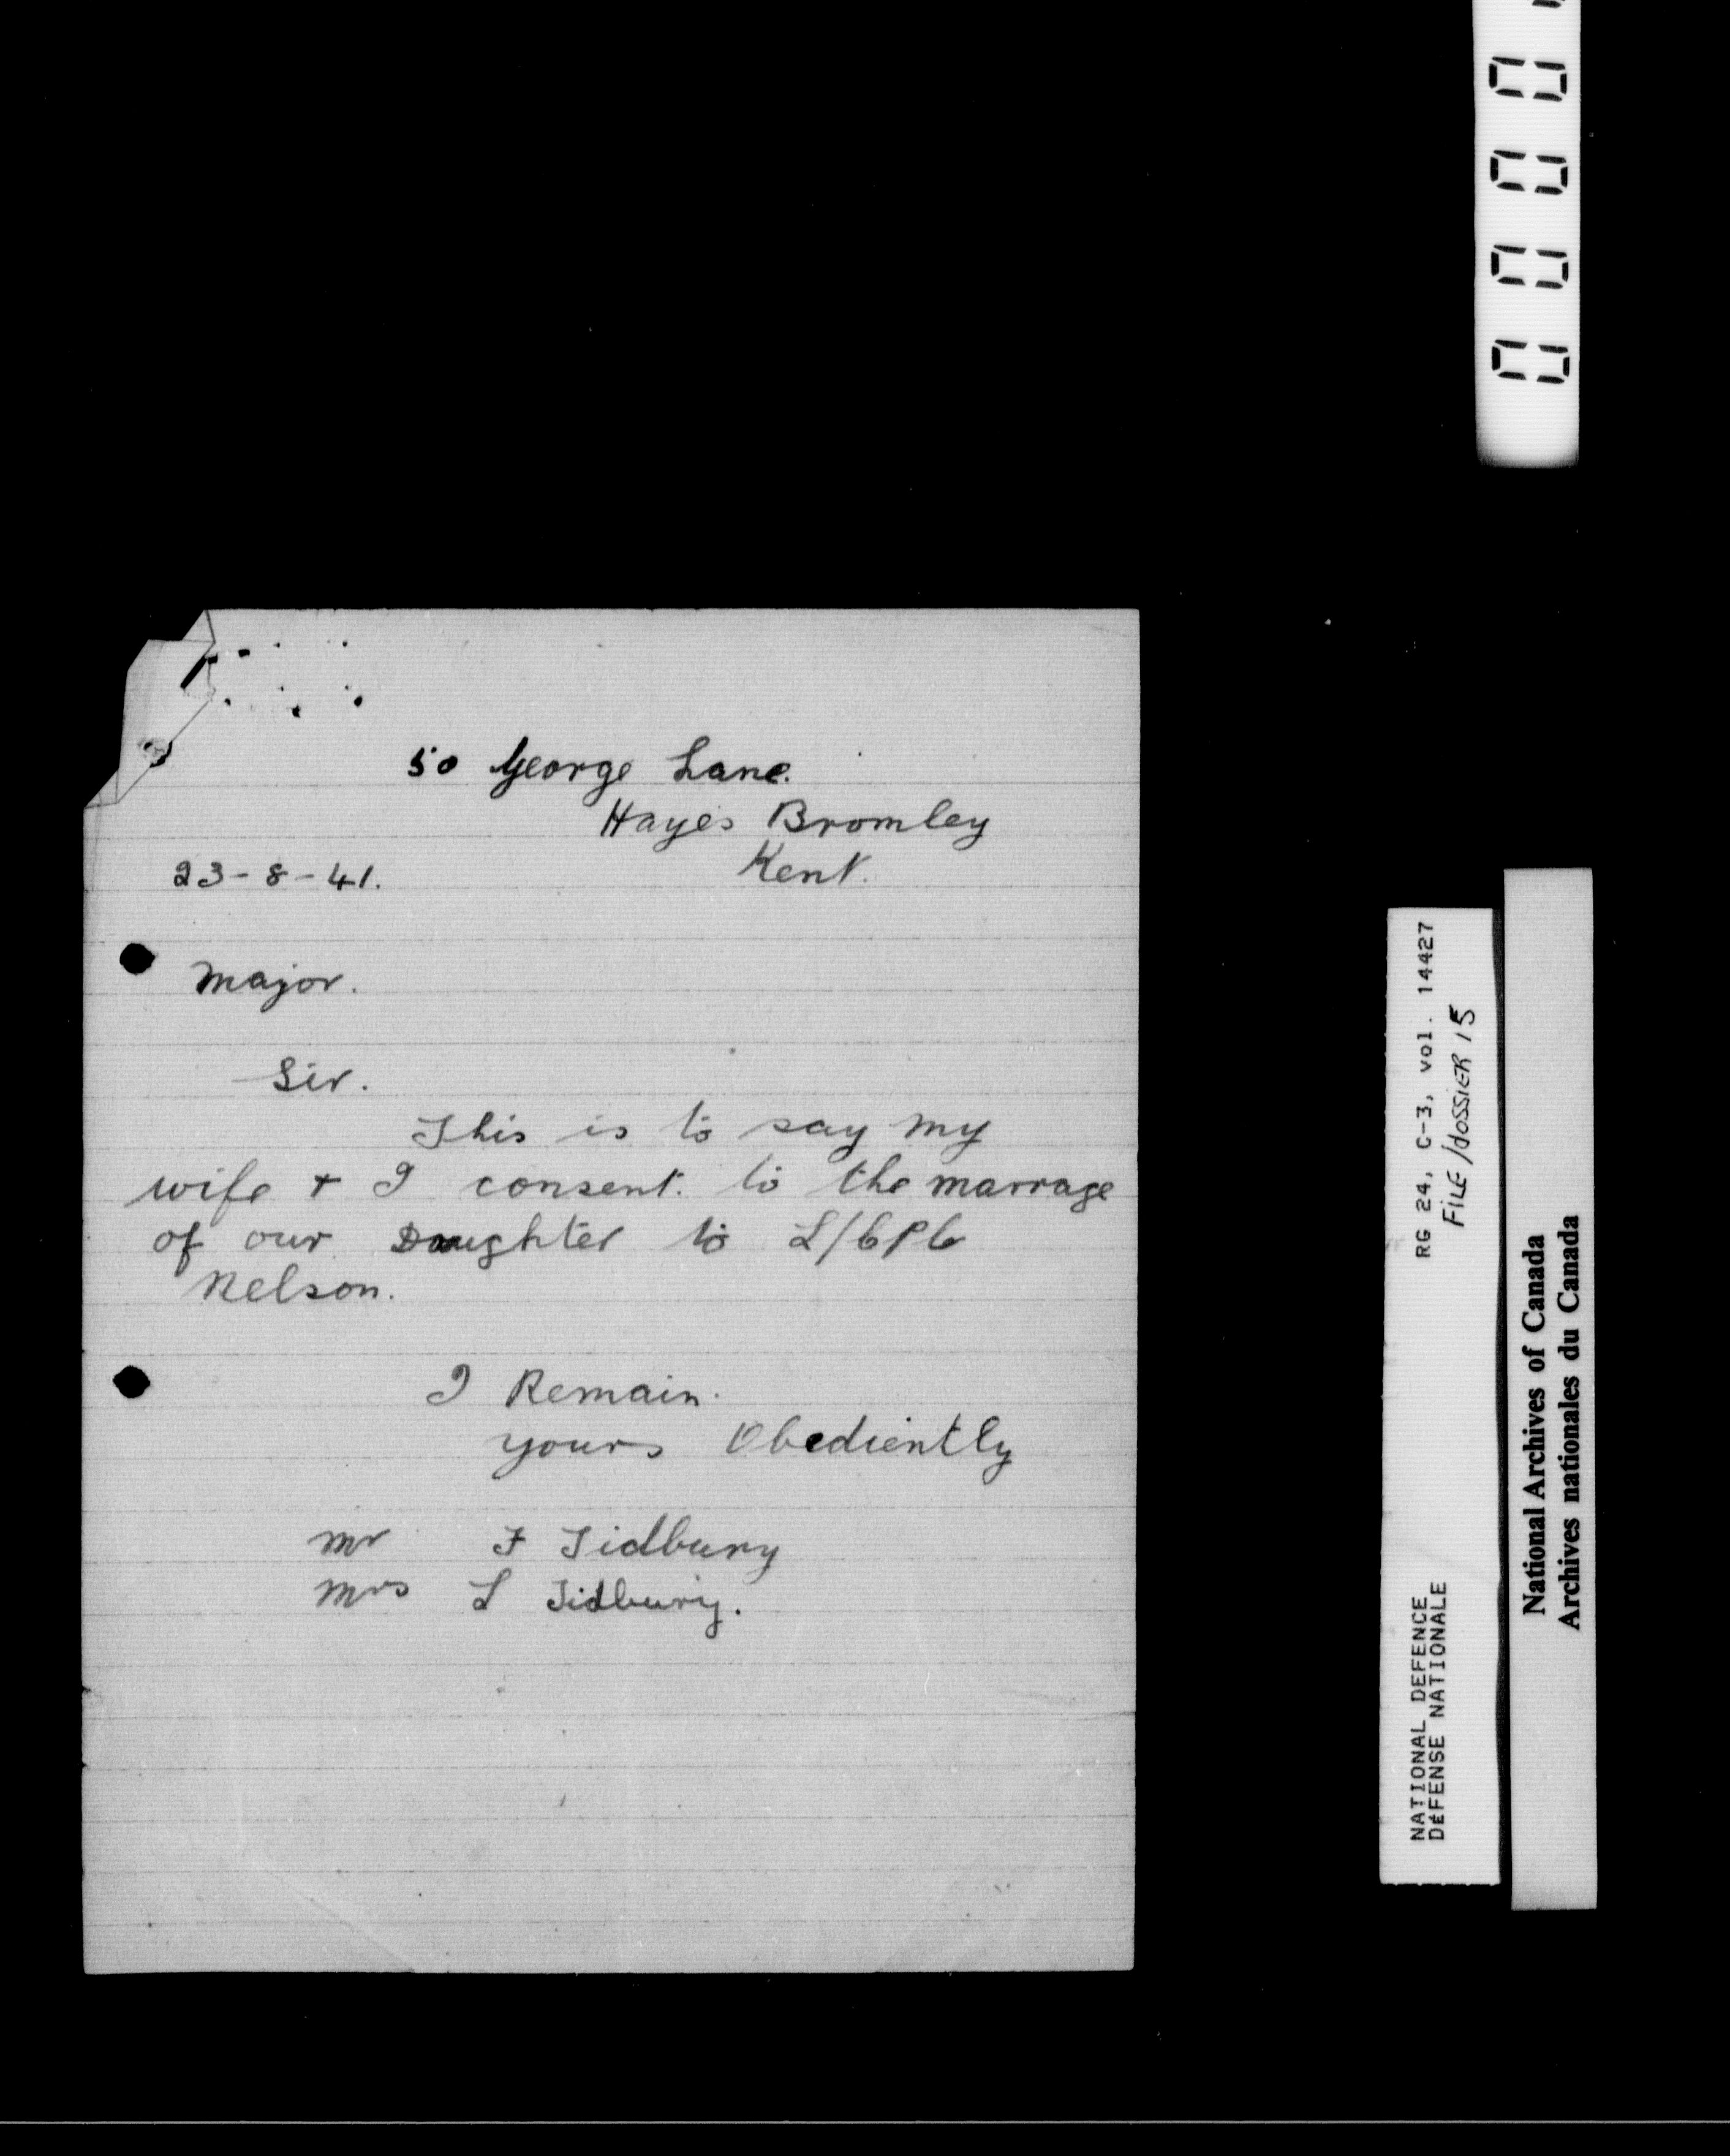 50 George Lane.
Hayes Bromley
Kent.
23-8-41.
Major.
Sir.
This is to say my
wife + I consent. to the marrage
of our Daughter to L/CPL
Nelson.
I Remain.
yours Obediently
Mr F Tidbury
Mrs L Tidbury.
RG 24, C-3, vol. 14427
FILE/dOSSIER 15
NATIONAL DEFENCE
DÉFENSE NATIONALE
National Archives of Canada
Archives nationales du Canada